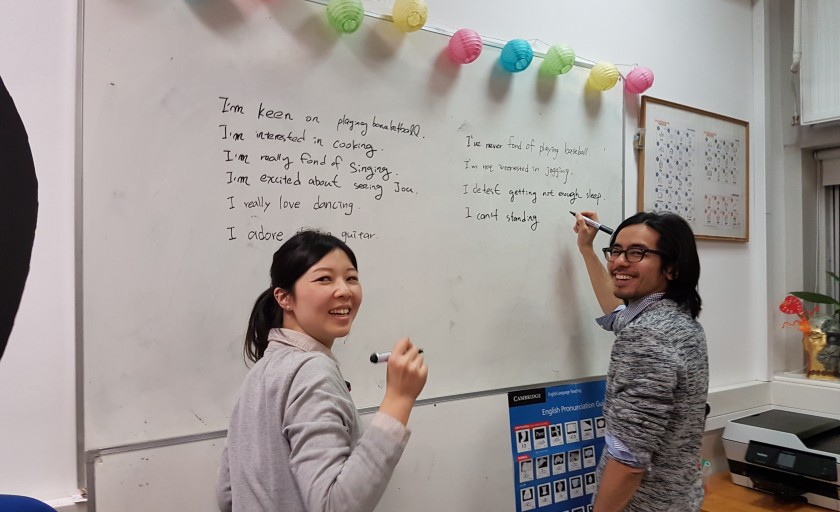 I'm keen on playing basketball.
I'm interested in cooking.
I'm really fond of Singing.
I'm excited about seeing You.
I really love dancing.
I adore guitar.
I've never fond of playing baseball.
I'm not interested in jogging.
I detest getting not enough sleep.
I can't standing
CAMBRIDGE English Language Teaching
English Pronunciation Gu